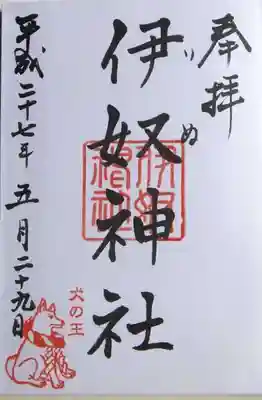 奉拝
伊奴神社
いぬ
平成二十七年五月二十九日
犬の王